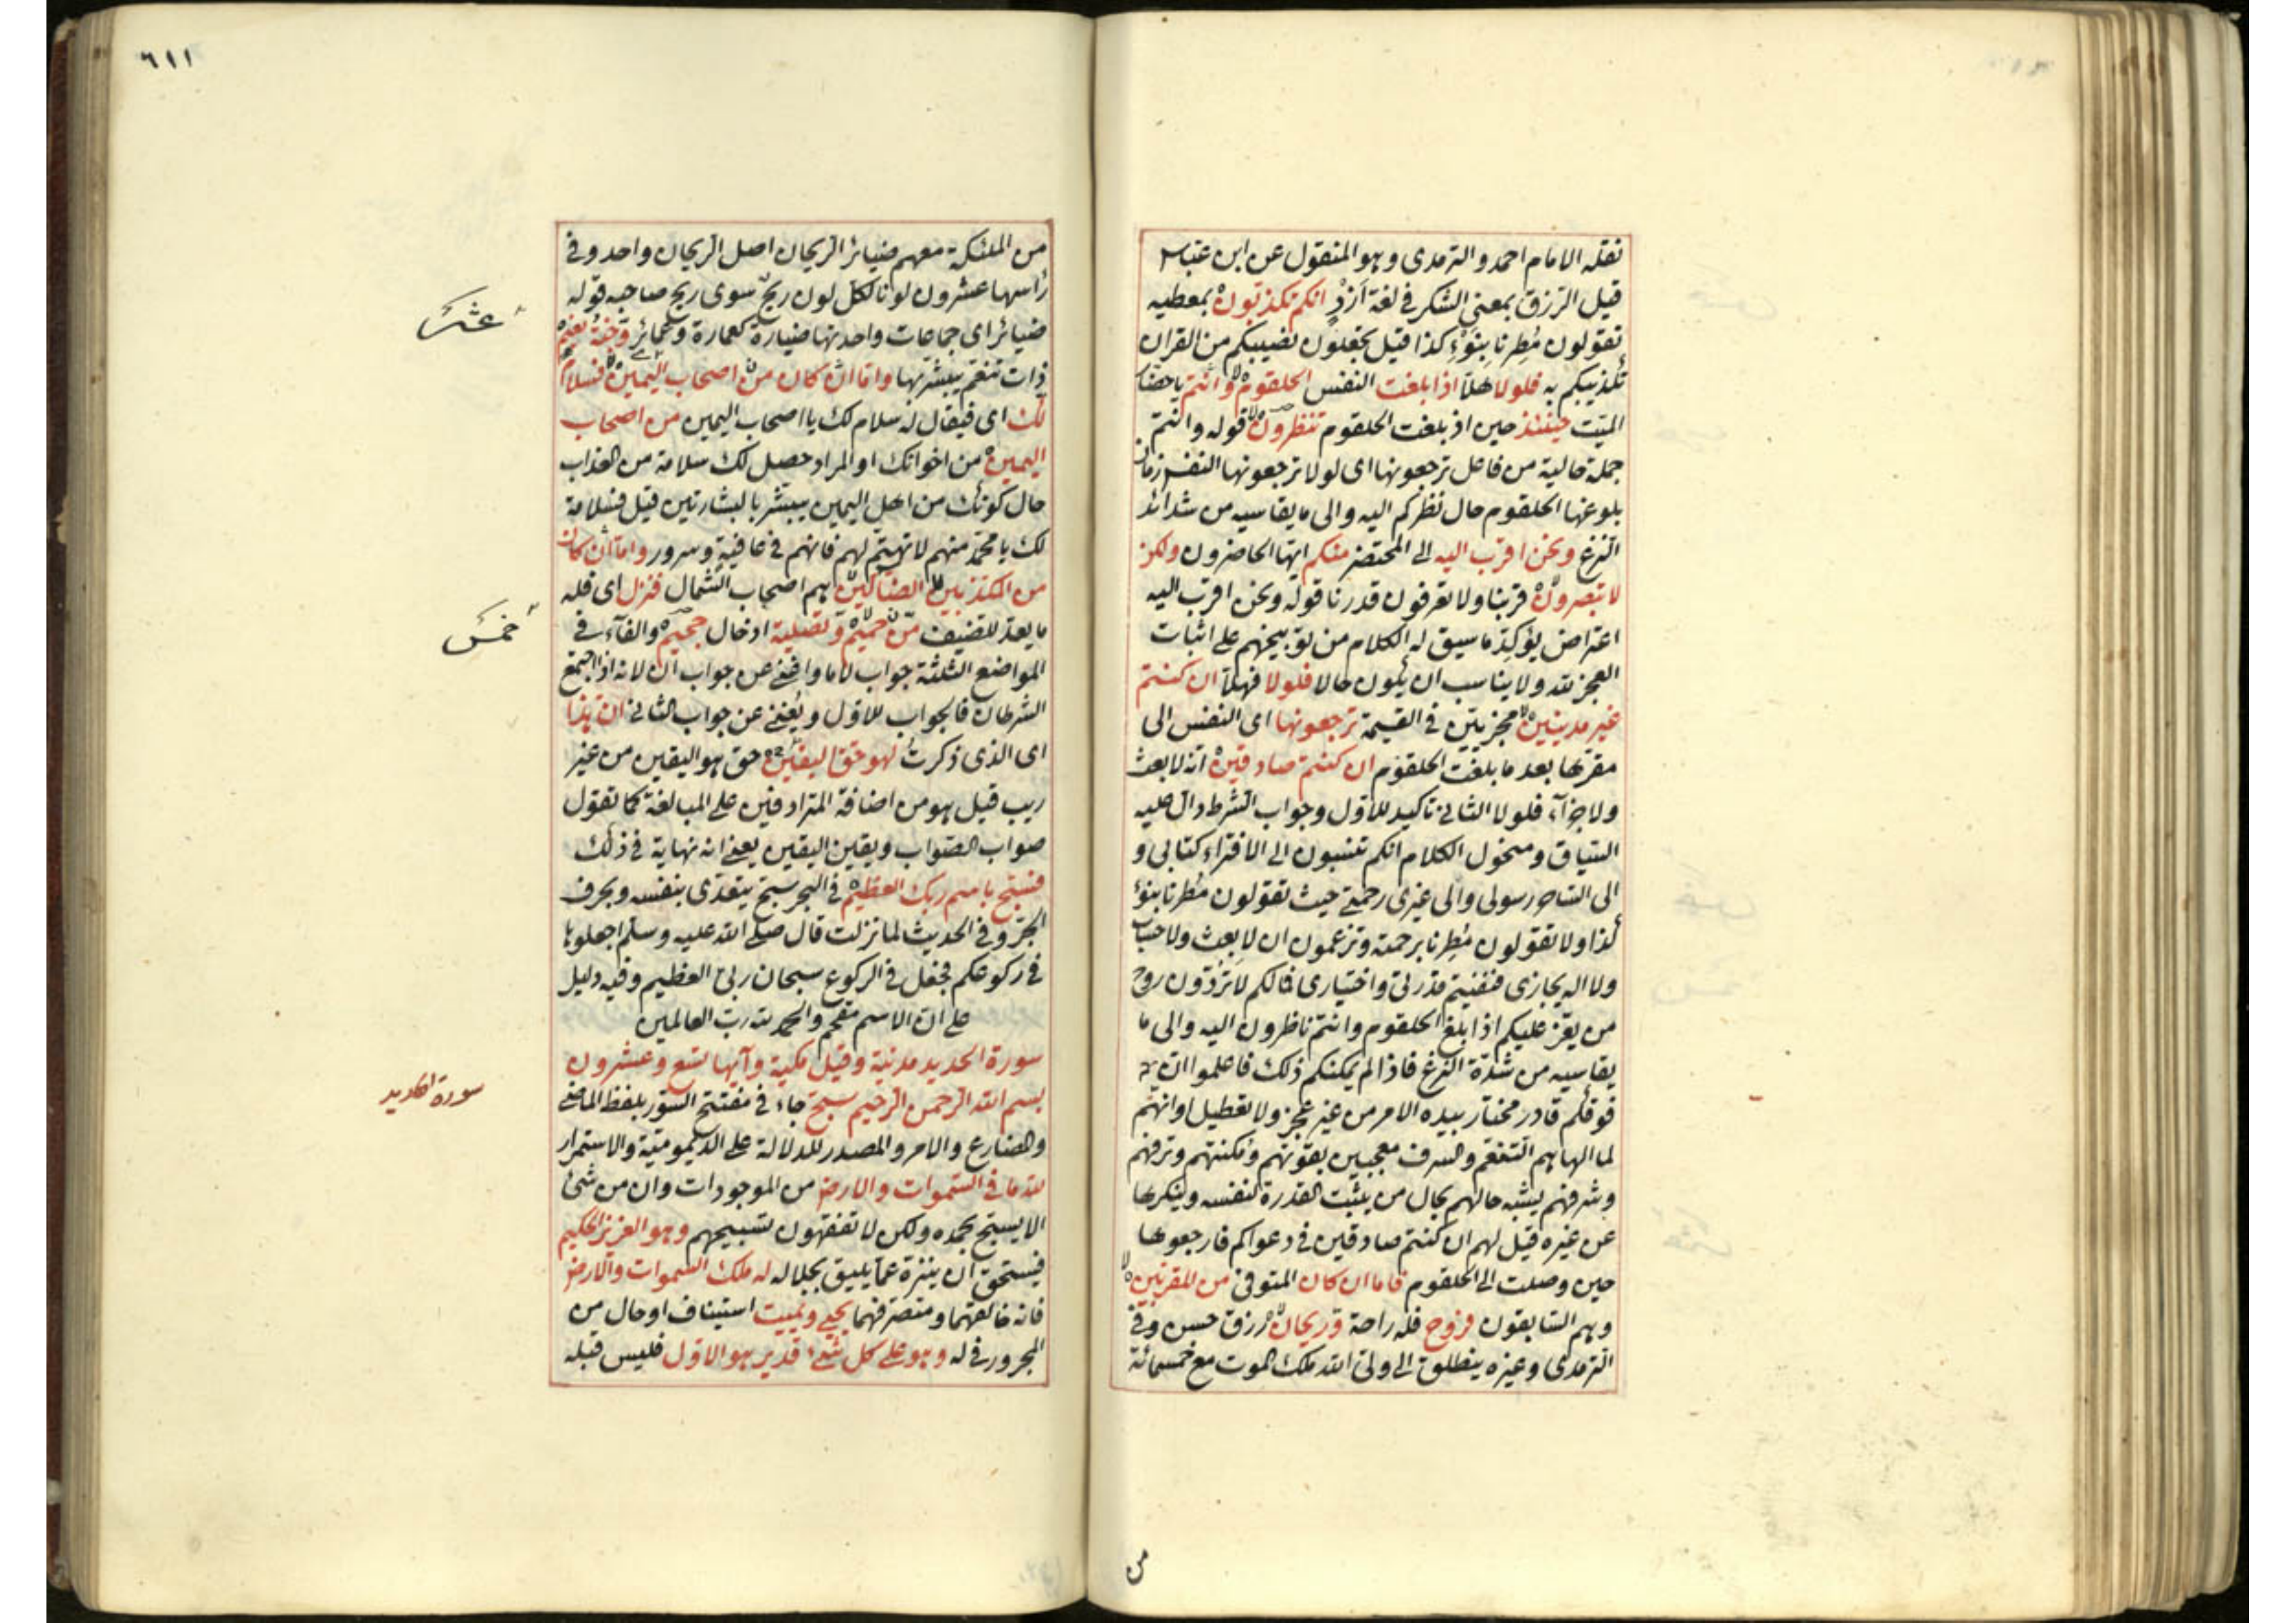 نقله الامام احمد والترمذى وهو المنقول عن ابن عباس
قيل الرزق بمعنى الشكر فى لغة ازد انكم تكذبون بمعطيه
تقولون مطرنا بنوء كذا قيل تجعلون نصيبكم من القران
تكذيبكم به فلولا هلا اذا بلغت النفس الحلقوم وانتم يا حضار
الميت حينئذ حين اذ بلغت الحلقوم تنظرون قوله وانتم
جملة حالية من فاعل ترجعونها اى لولا ترجعونها النفس زمان
بلوغها الحلقوم حال نظركم اليه والى ما يقاسيه من شدائد
النزع ونحن اقرب اليه الى المحتضر منكم ايها الحاضرون ولكن
لا تبصرون قربنا ولا تعرفون قدرنا قوله ونحن اقرب اليه
اعتراض يؤكد ما سيق له الكلام من توبيخهم على اثبات
العجز لله ولا يناسب ان يكون حالا فلولا فهلا ان كنتم
غير مدينين مجزيين فى القيمة ترجعونها اى النفس الى
مقرها بعد ما بلغت الحلقوم ان كنتم صادقين انه لا بعث
ولا جزاء فلولا الثانى تاكيد للاول وجواب الشرط دال عليه
السياق ومحول الكلام انكم تنسبون الى الافتراء كتابى و
الى الساحر رسولى والى غيرى رحمتى حيث تقولون مطرنا بنوء
كذا ولا تقولون مطرنا برحمته وتزعمون ان لا بعث ولا حساب
ولا اله يجازى فنفيتم قدرتى واختيارى فمالكم لا تردون روح
من يعز عليكم اذا بلغ الحلقوم وانتم ناظرون اليه والى ما
يقاسيه من شدة النزع فاذا لم يمكنكم ذلك فاعلموا ان
فوقكم قادر مختار بيده الامر من غير عجز ولا تعطيل او انهم
لما الهاهم التنعم والسرف معجبين بقوتهم ومكنتهم وترفهم
وشرفهم يشبه حالهم بحال من يثبت القدرة لنفسه وينكرها
عن غيره قيل لهم ان كنتم صادقين فى دعواكم فارجعوها
حين وصلت الى الحلقوم فاما ان كان المتوفى من المقربين
وهم السابقون فروح فله راحة وريحان رزق حسن وفى
الترمذى وغيره ينطلق الى ولى الله ملك الموت مع خمسمائة
من
٦١١
من الملئكة معهم ضبائر الريحان اصل الريحان واحد وفى
رأسها عشرون لونا لكل لون ريح سوى ريح صاحبه قوله
ضبائر اى جماعات واحدتها ضبارة كعمارة وعمائر وجنة نعيم
ذات تنعم يبشر بها واما ان كان من اصحاب اليمين فسلام
لك اى فيقال له سلام لك يا اصحاب اليمين من اصحاب
اليمين من اخوانك او المراد حصل لك سلامة من العذاب
حال كونك من اهل اليمين يبشر بالبشارتين قيل فسلامة
لك يا محمد منهم لا تهتم لهم فانهم فى عافية وسرور واما ان كان
من المكذبين الضالين هم اصحاب الشمال فنزل اى فله
ما يعد للضيف من حميم وتصلية ادخال جحيم والفاء فى
المواضع الثلثة جواب لاما واغنى عن جواب ان لانه اذا اجتمع
الشرطان فالجواب للاول ويغنى عن جواب الثانى ان هذا
اى الذى ذكرت لهو حق اليقين حق هو اليقين من غير
ريب قيل هو من اضافة المترادفين على المبالغة كما تقول
صواب الصواب ويقين اليقين يعنى انه نهاية فى ذلك
فسبح باسم ربك العظيم فى البحر سبح يتعدى بنفسه وبحرف
الجر وفى الحديث لما نزلت قال صلى الله عليه وسلم اجعلوها
فى ركوعكم فجعل فى الركوع سبحان ربى العظيم وفيه دليل
على ان الاسم مقحم والحمد لله رب العالمين
سورة الحديد مدنية وقيل مكية وآيها تسع وعشرون
بسم الله الرحمن الرحيم سبح جاء فى مفتتح السور بلفظ الماضى
والمضارع والامر والمصدر للدلالة على الديمومية والاستمرار
لله ما فى السموات والارض من الموجودات وان من شئ
الا يسبح بحمده ولكن لا تفقهون تسبيحهم وهو العزيز الحكيم
فيستحق ان ينزه عما يليق بجلاله له ملك السموات والارض
فانه خالقهما ومتصرفهما يحيى ويميت استيناف او حال من
المجرور فى له وهو على كل شئ قدير هو الاول فليس قبله
عشر
خمس
سورة الحديد